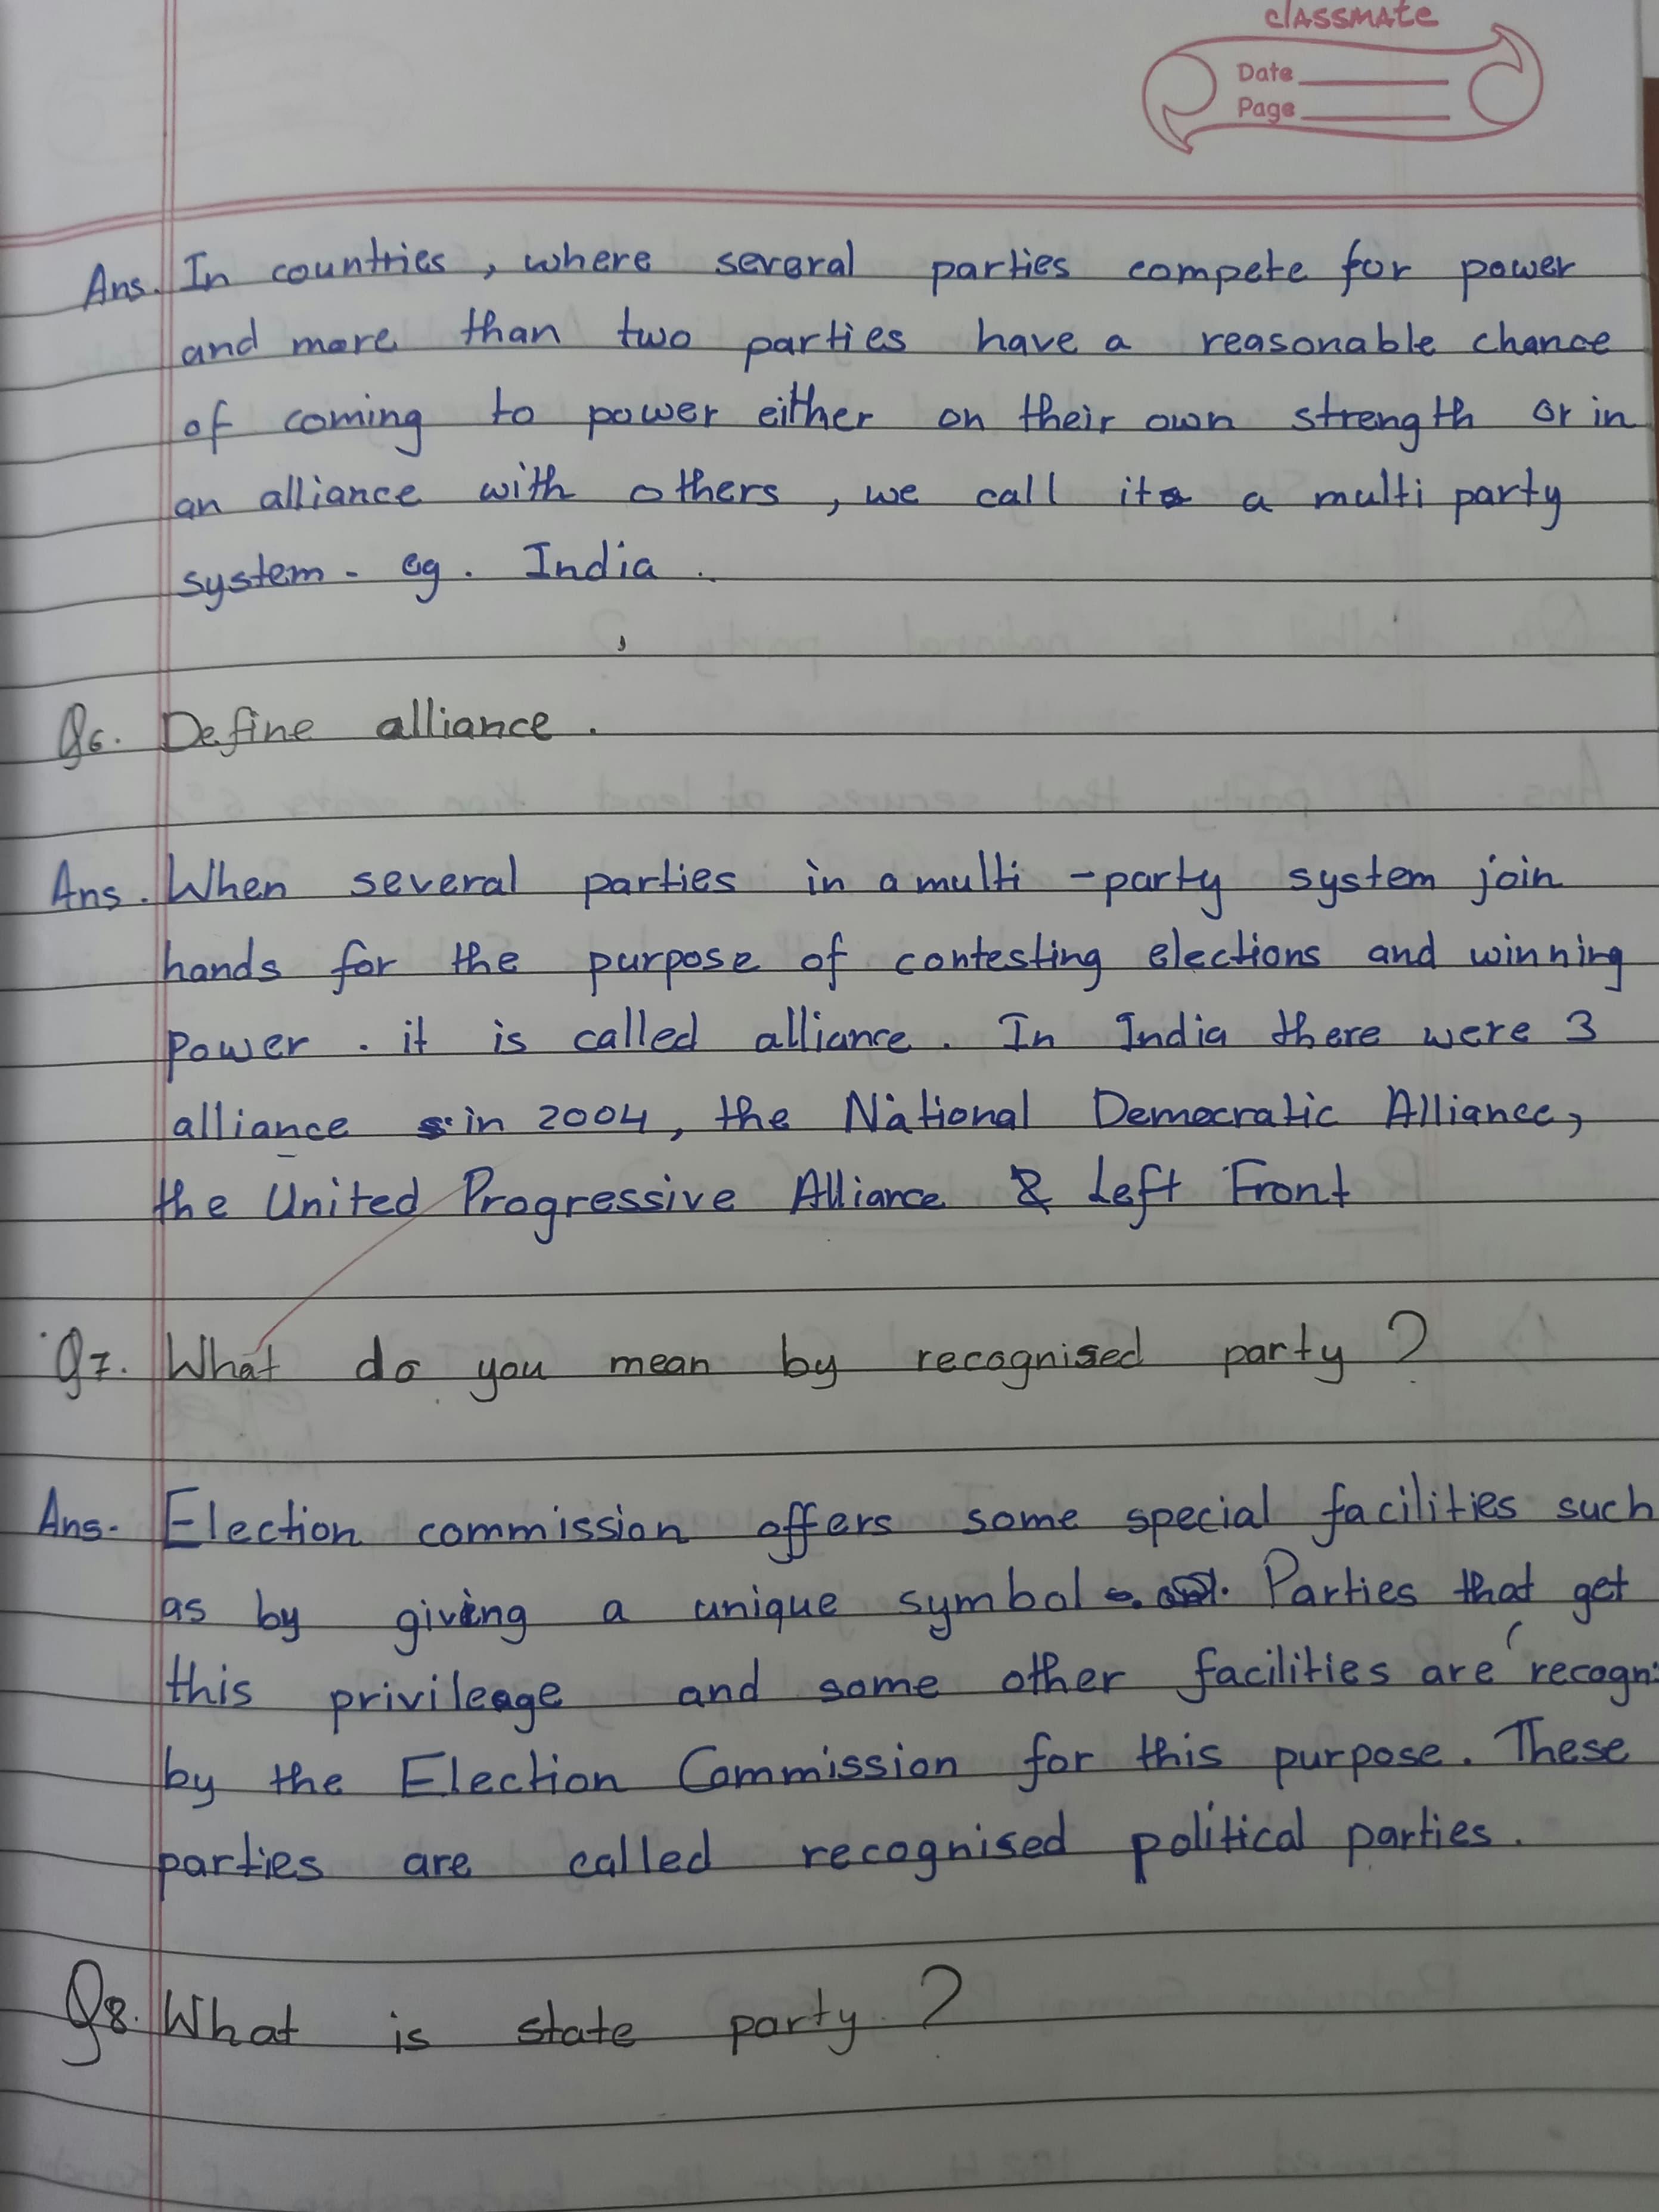 classmate
Date
Page
Ans. In countries, where several parties compete for power
and more than two parties have a reasonable chance
of coming to power either on their own strength or in
an alliance with others, we call it a multi party
system. eg. India.
Q6. Define alliance.
Ans. When several parties in a multi-party system join
hands for the purpose of contesting elections and winning
power. it is called alliance. In India there were 3
alliance s in 2004, the National Democratic Alliance,
the United Progressive Alliance & Left Front
Q7. What do you mean by recognised party?
Ans. Election commission offers some special facilities such
as by giving a unique symbol. Parties that get
this privileage and some other facilities are recogni
by the Election Commission for this purpose. These
parties are called recognised political parties.
Q8. What is state party?